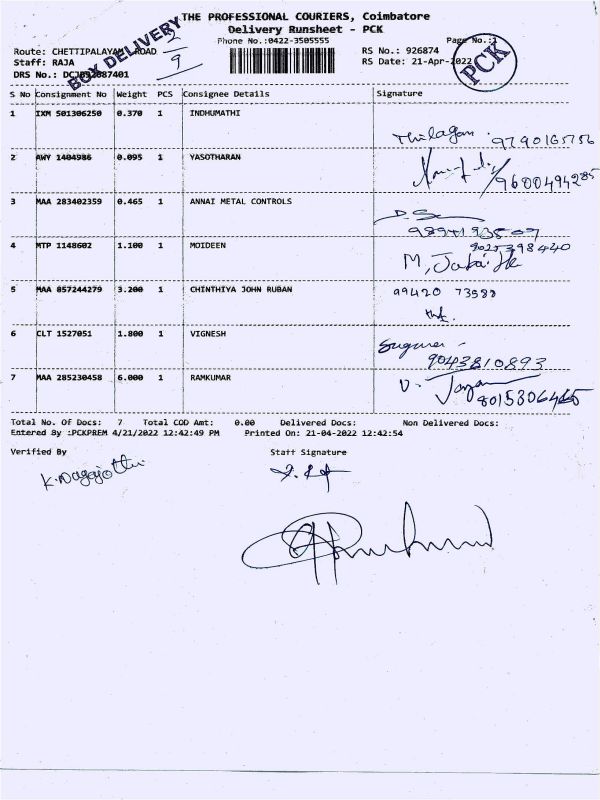 THE PROFESSIONAL COURIERS, Coimbatore
Delivery Runsheet - PCK
Phone No.:0422-3505555
Page No.:1
BOX DELIVERY
2/9
PCK
Route: CHETTIPALAYAM ROAD
RS No.: 926874
Staff: RAJA
RS Date: 21-Apr-2022
DRS No.:
S No Consignment No Weight PCS Consignee Details Signature
1 IXM 501306250 0.370 1 INDHUMATHI
Thilagan 9790165756
2 AWY 1404986 0.095 1 YASOTHARAN
9600494285
3 MAA 283402359 0.465 1 ANNAI METAL CONTROLS
4 MTP 1148602 1.100 1 MOIDEEN
9025398440
5 MAA 857244279 3.200 1 CHINTHIYA JOHN RUBAN
99420 73588
6 CLT 1527051 1.800 1 VIGNESH
9043810893
7 MAA 285230458 6.000 1 RAMKUMAR
Total No. Of Docs: 7 Total COD Amt: 0.00 Delivered Docs: Non Delivered Docs:
Entered By :PCKPREM 4/21/2022 12:42:49 PM Printed On: 21-04-2022 12:42:54
Verified By Staff Signature
K.Nagajothi